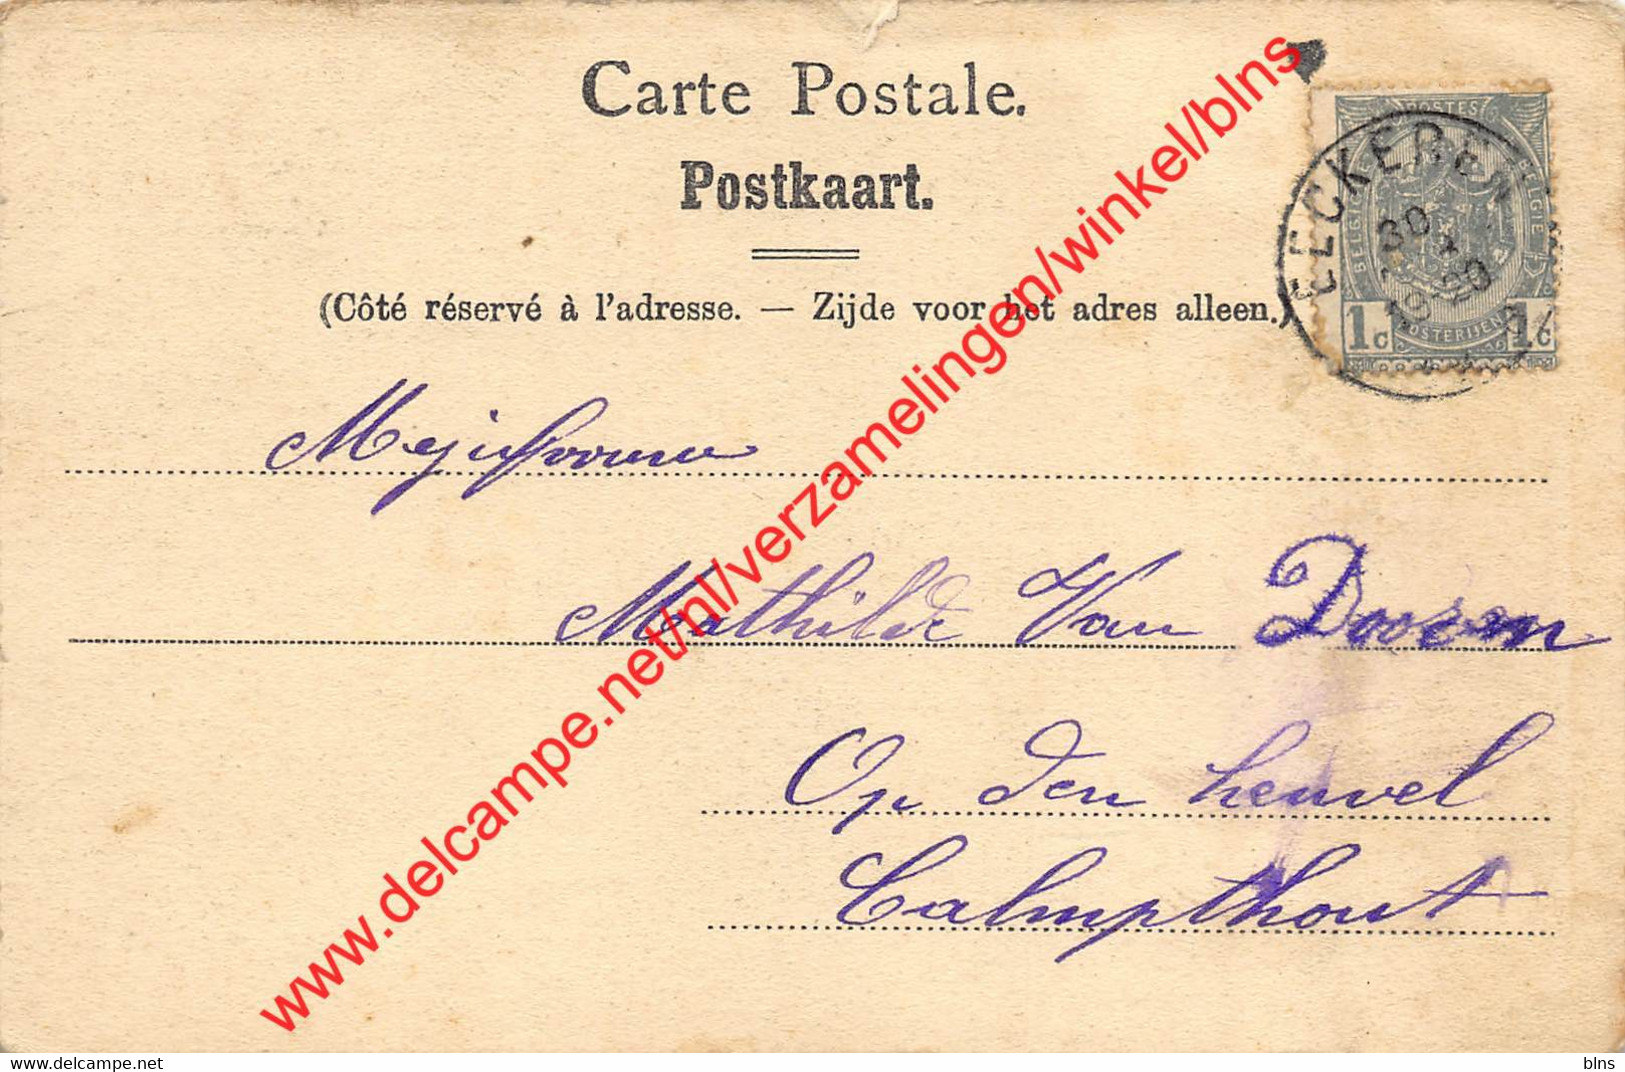 Carte Postale.
Postkaart.
(Côté réservé à l'adresse. — Zijde voor het adres alleen.)
POSTES
BELGIQUE
BELGIE
POSTERIJEN
1c 1c
EECKEREN
30
19-20
Mejufvrouw
Mathilde Van Dooren
Op den heuvel
Calmpthout
www.delcampe.net/nl/verzamelingen/winkel/blns
Website: http://www.delcampe.net
blns